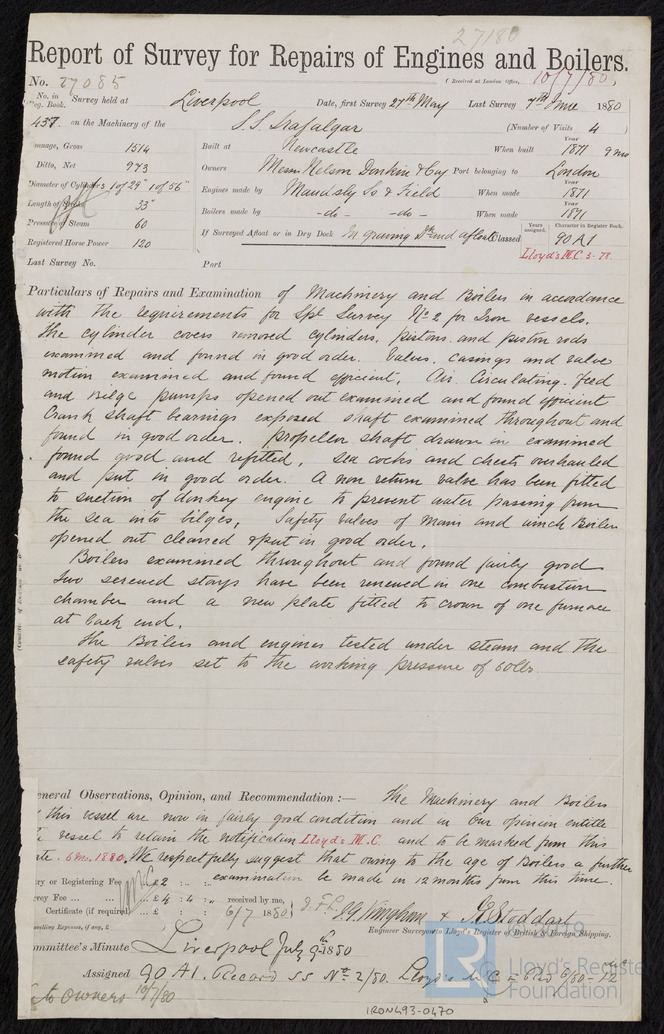 27180
Report of Survey for Repairs of Engines and Boilers.
No. 27085 (Received at London Office, 10/7/80)
No. in Reg. Book. Survey held at Liverpool Date, first Survey 27th May Last Survey 7th June 1880
457. on the Machinery of the S.S. Trafalgar (Number of Visits 4)
onnage, Gross 1514 Built at Newcastle When built Year 1871 9 mo
Ditto, Net 973 Owners Messrs Nelson Donkin & Coy Port belonging to London
Diameter of Cylinders 1 of 29" 1 of 56" Engines made by Maudsly So & Field When made Year 1871
Length of Stroke 33" Boilers made by -do- -do- When made Year 1871
Pressure of Steam 60
Registered Horse Power 120 If Surveyed Afloat or in Dry Dock In graving Dk and afloat Classed Years assigned. Character in Register Book. 90 A1
Lloyd's M.C. 3-78
Last Survey No. Port
Particulars of Repairs and Examination of Machinery and Boilers in accordance
with the requirements for Spl Survey No 2 for Iron vessels.
The cylinder covers removed cylinders, pistons and piston rods
examined and found in good order. Valves, casings and valve
motion examined and found efficient. Air. Circulating. Feed
and Bilge pumps opened out examined and found efficient
Crank shaft bearings exposed shaft examined throughout and
found in good order. propeller shaft drawn in examined
found good and refitted, sea cocks and chests overhauled
and put in good order. A non return valve has been fitted
to suction of donkey engine to prevent water passing from
the sea into bilges, Safety valves of main and winch Boiler
opened out cleaned & put in good order.
Boilers examined throughout and found fairly good
two screwed stays have been renewed in one combustion
chamber and a new plate fitted to crown of one furnace
at back end.
The Boilers and engines tested under steam and the
safety valves set to the working pressure of 60lbs
eneral Observations, Opinion, and Recommendation:— The Machinery and Boilers
this vessel are now in fairly good condition and in our opinion entitle
vessel to retain the notification Lloyd's M.C. and to be marked from this
ate. 6 Mo. 1880. We respectfully suggest that owing to the age of Boilers a further
examination be made in 12 months from this time.
ry or Registering Fee £2 : „ : „
vey Fee ... £ 4 : 4 : „ received by me,
Certificate (if required) .. £ : : 6/7 1880 J.G. Wingham & J. Stoddart
Travelling Expenses, if any, £
Engineer Surveyor to Lloyd's Register of British & Foreign Shipping.
ommittee's Minute Liverpool July 9th 1880
Assigned 90 A1. Record SS No 2/80. Lloyd's M.C.
to owners 10/7/80
LR Lloyd's Register Foundation
IRON493-0470